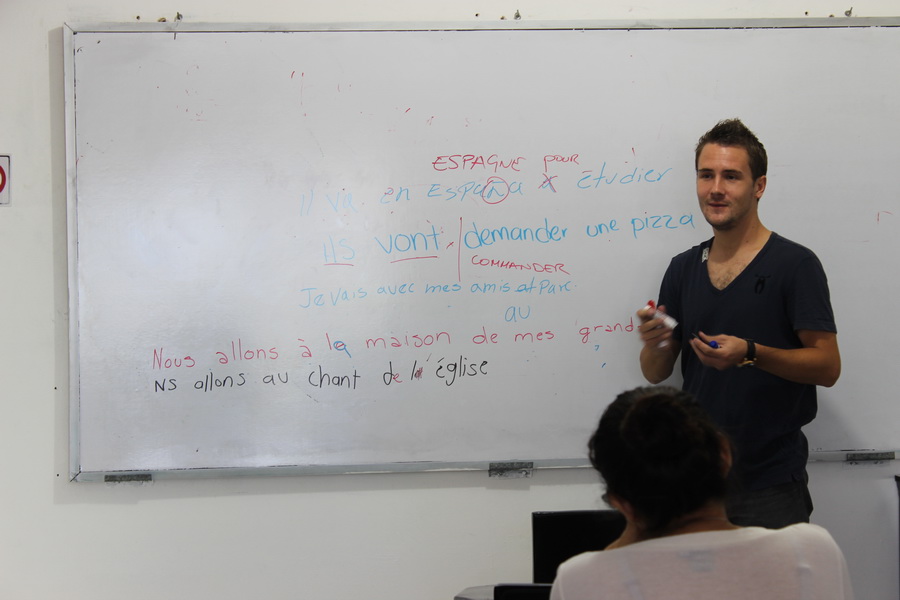 ESPAGNE pour
Il va en España x étudier
ILS vont demander une pizza
COMMANDER
Je vais avec mes amis at Parc.
au
Nous allons à la maison de mes grand
NS allons au chant de l' église